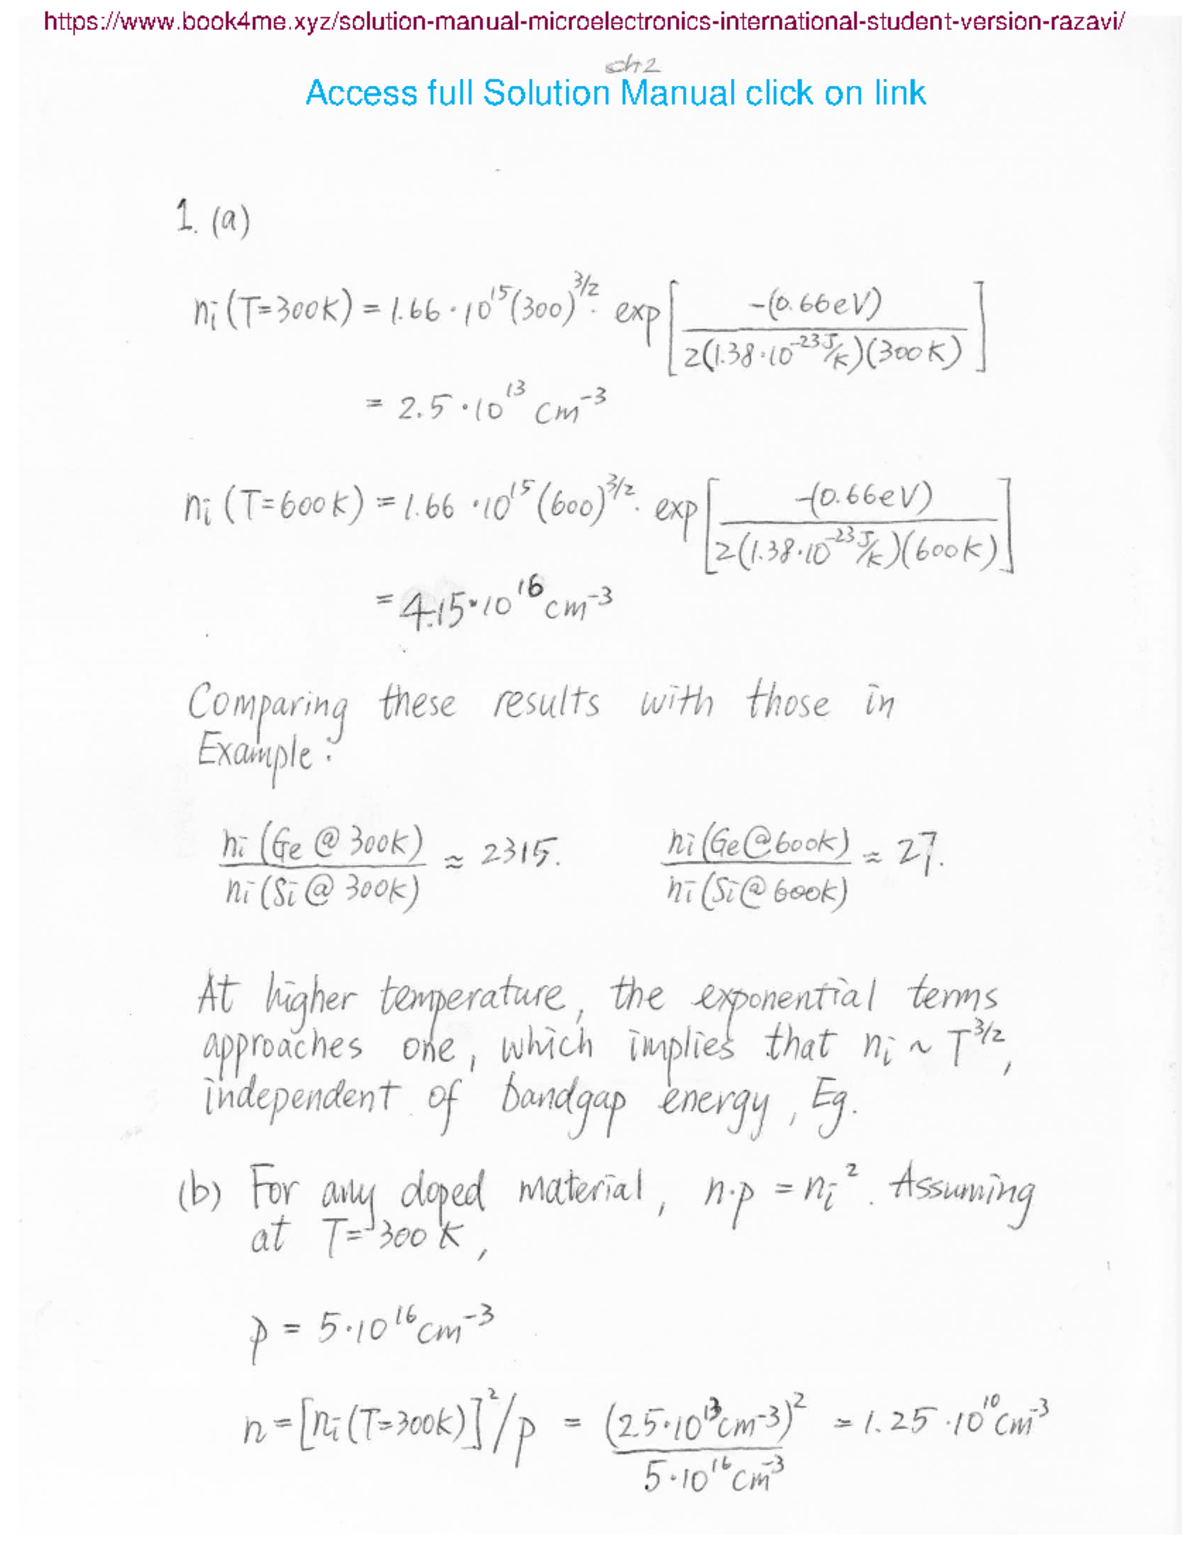 https://www.book4me.xyz/solution-manual-microelectronics-international-student-version-razavi/
ch2
Access full Solution Manual click on link
1. (a)
ni (T=300K) = 1.66 · 10^15 (300)^3/2 · exp [ -(0.66eV) / 2(1.38·10^-23 J/K)(300K) ]
= 2.5 · 10^13 cm^-3
ni (T=600K) = 1.66 · 10^15 (600)^3/2 · exp [ -(0.66eV) / 2(1.38·10^-23 J/K)(600K) ]
= 4.15 · 10^16 cm^-3
Comparing these results with those in
Example :
ni (Ge @ 300K) / ni (Si @ 300K) ≈ 2315. ni (Ge @ 600K) / ni (Si @ 600K) ≈ 27.
At higher temperature, the exponential terms
approaches one, which implies that ni ~ T^3/2,
independent of bandgap energy, Eg.
(b) For any doped material, n·p = ni^2. Assuming
at T= 300 K,
p = 5·10^16 cm^-3
n = [ni (T=300K)]^2 / p = (2.5·10^13 cm^-3)^2 / 5·10^16 cm^-3 = 1.25 · 10^10 cm^-3